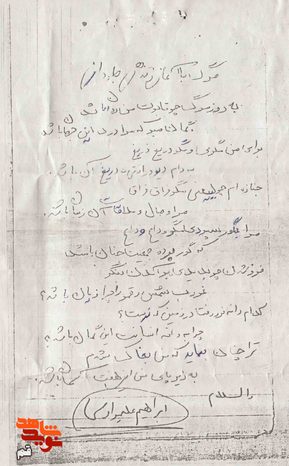 به روز مرگ چو تابوت من روان باشد
گمان مبر که مرا درد این جهان باشد
برای من مگری و مگو دریغ دریغ
به دام دیو درافتی دریغ آن باشد
جنازه ام چو ببینی مگو فراق فراق
مرا وصال و ملاقات آن زمان باشد
مرا بگور سپردی مگو وداع وداع
که گور پرده جمعیت جنان باشد
فرو شدن چو بدیدی برآمدن بنگر
غروب شمس و قمر را چرا زیان باشد؟
کدام دانه فرو رفت در زمین که نرست؟
چرا به دانه انسانت این گمان باشد؟
ترا چنان نماید که من بخاک شدم
به زیر پای من این هفت آسمان باشد
والسلام
نوید شاهد
قم